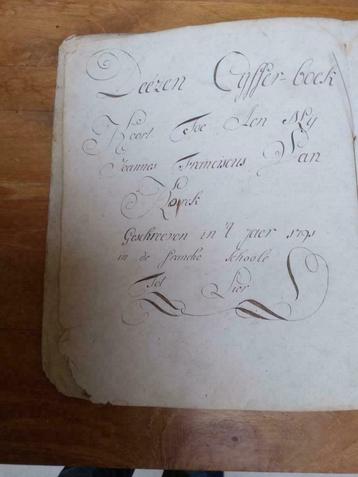 Deézen Cyffer-boek
Hoort Toe Aen My
Joannes Franciscus Van
Kerck
Geschreeven in 't jaer 1791
in de francke schoole
Tot Lier